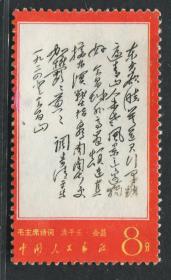 东方欲晓莫道君行早踏
遍青山人未老风景这边独
好会昌城外高峰颠连直
接东溟战士指看南粤更
加郁郁葱葱 调寄清平乐
一九三四年
毛主席诗词 清平乐·会昌
中国人民邮政 8分